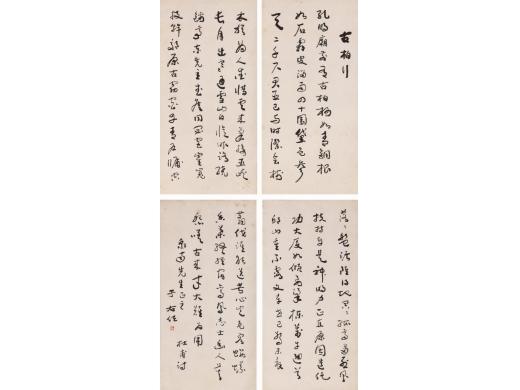 古柏行
孔明廟前有古柏柯如青銅根
如石霜皮溜雨四十圍黛色參
天二千尺君臣已與時際會樹
木猶為人愛惜雲來氣接巫峽
長月出寒通雪山白憶昨路繞
錦亭東先主武侯同閟宮崔嵬
枝幹郊原古窈窕丹青戶牖空
落落盤踞雖得地冥冥孤高多烈風
扶持自是神明力正直原因造化
功大廈如傾要梁棟萬牛迴首
邱山重不露文章世已驚未辭
翦伐誰能送苦心豈免容螻蟻
香葉終經宿鸞鳳志士幽人莫
怨嗟古來材大難為用
杜甫詩
先生正之
于右任